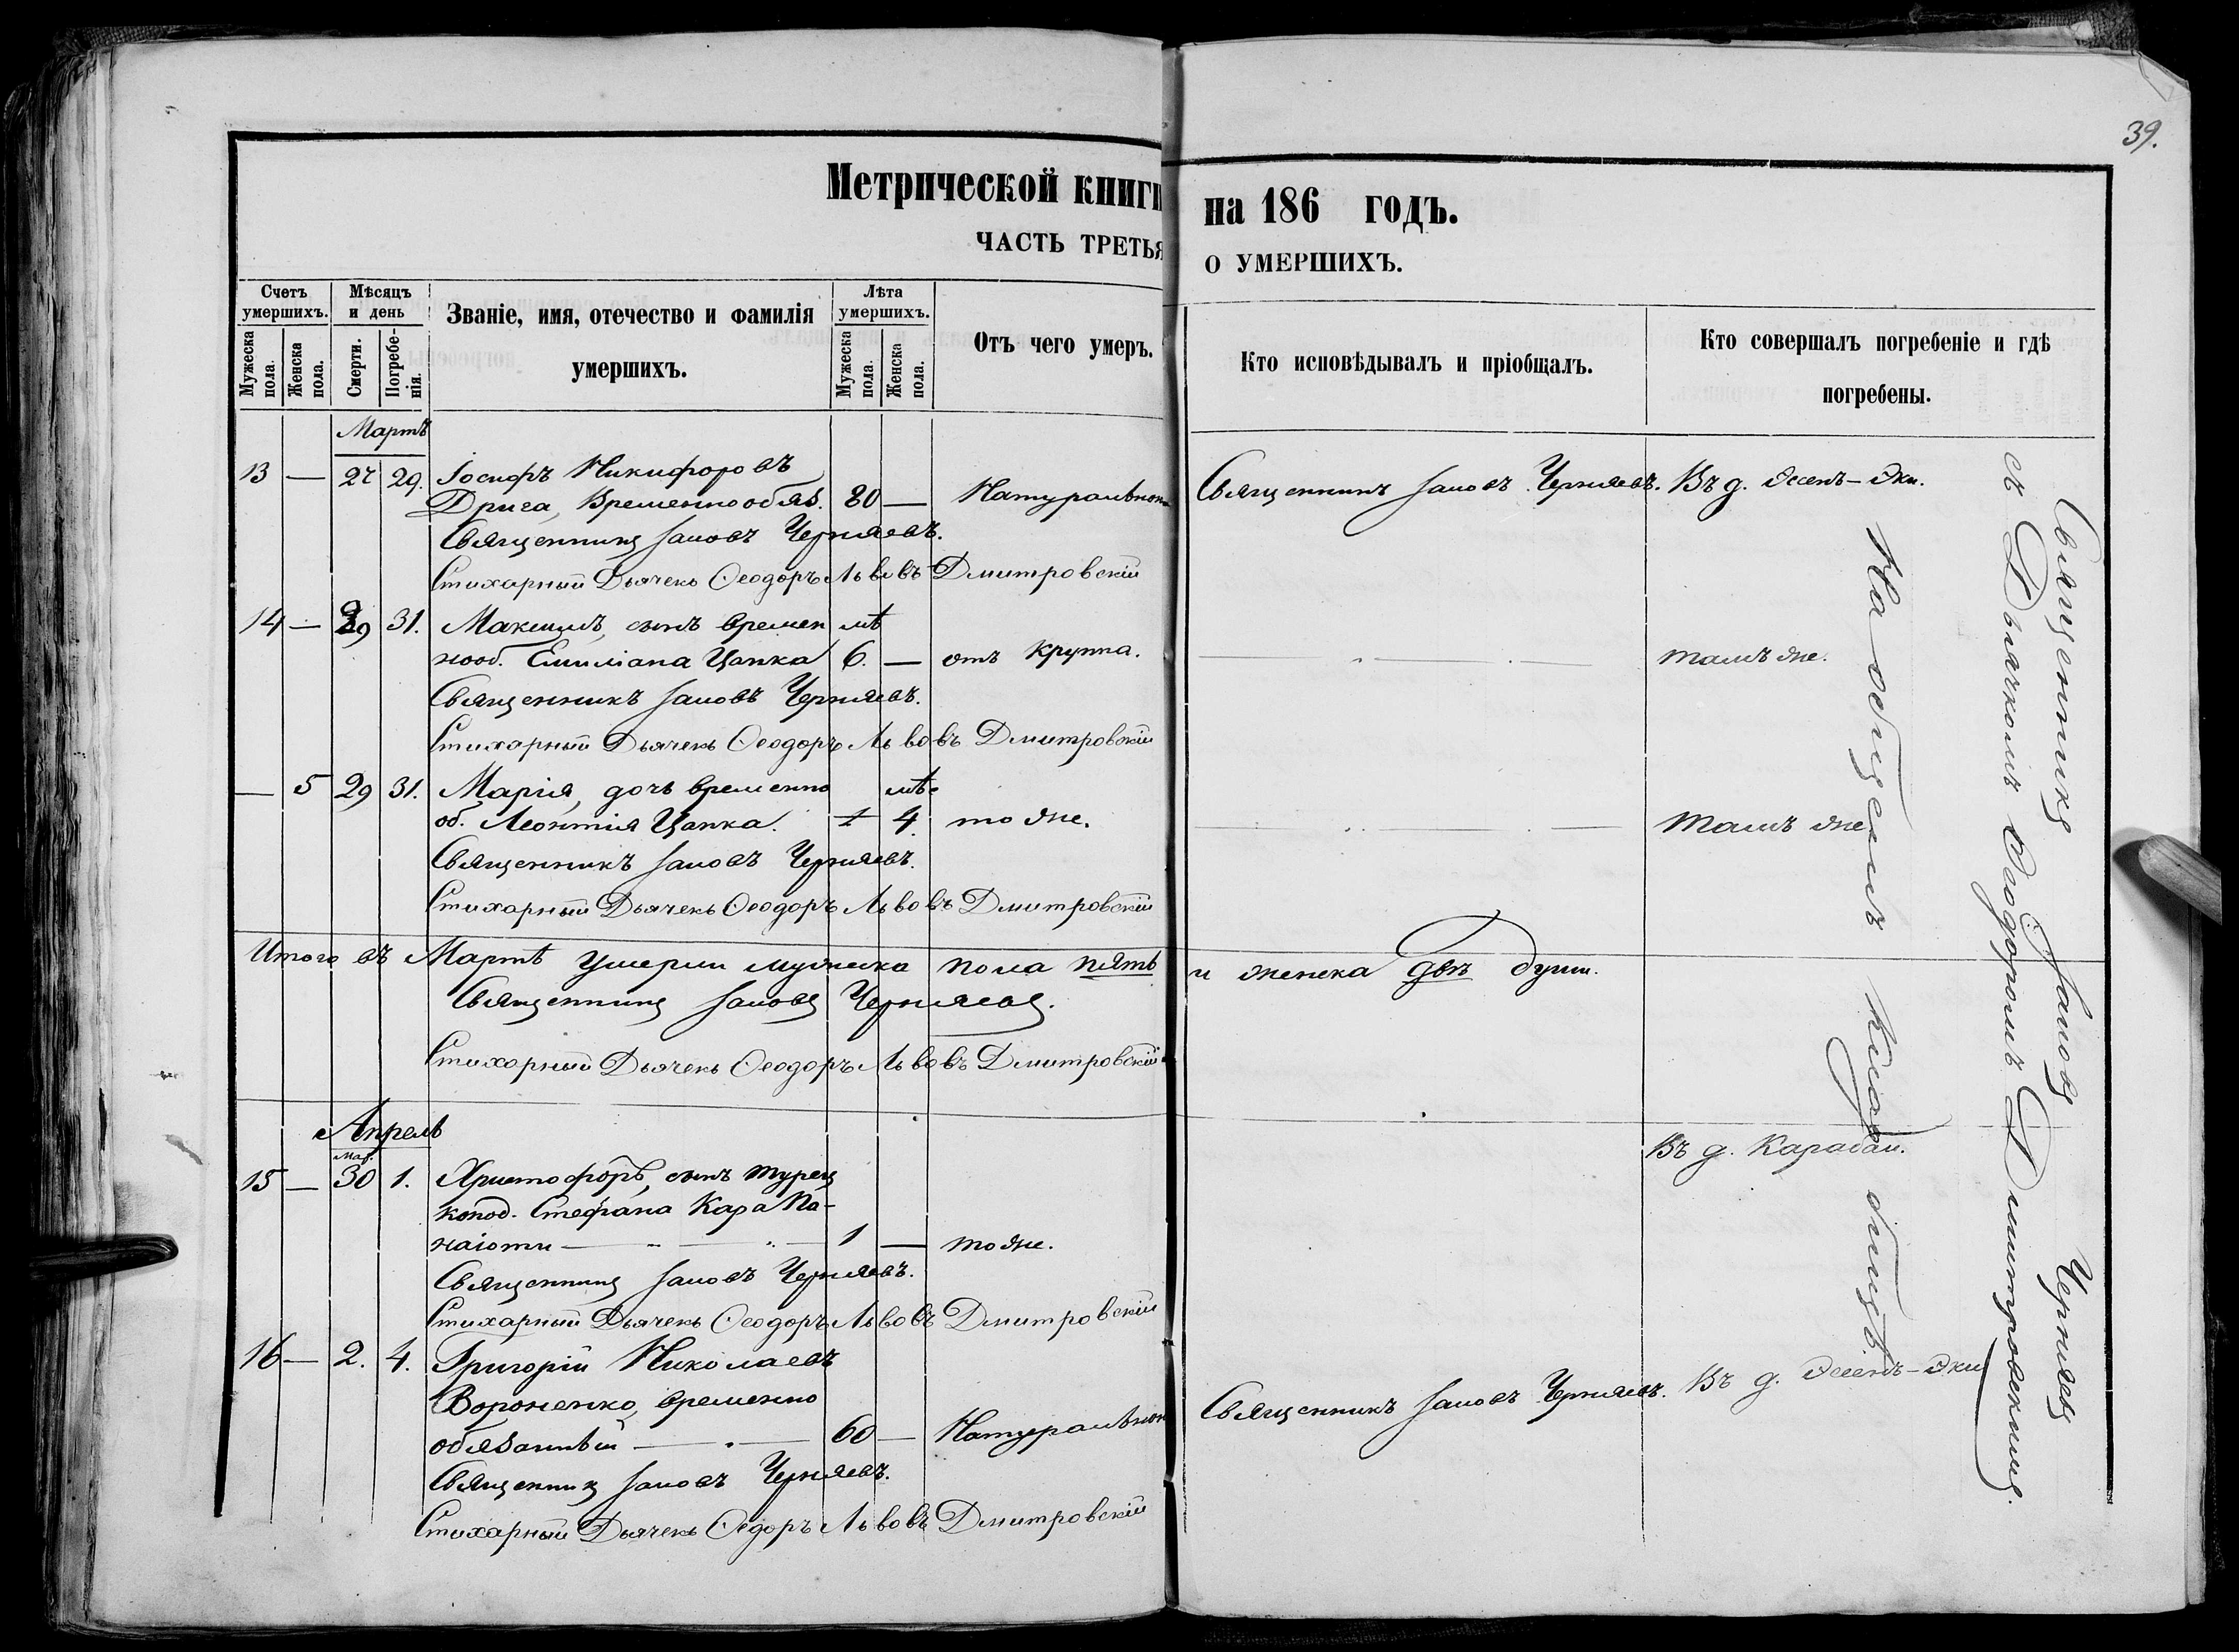 39.
Метрической книги на 186 годъ.
ЧАСТЬ ТРЕТЬЯ О УМЕРШИХЪ.
Счетъ умершихъ.
Мужеска пола.
Женска пола.
Мѣсяцъ и день
Смерти.
Погребенія.
Званіе, имя, отечество и фамилія умершихъ.
Лѣта умершихъ.
Мужеска пола.
Женска пола.
Отъ чего умеръ.
Кто исповѣдывалъ и пріобщалъ.
Кто совершалъ погребеніе и гдѣ погребены.
Мартъ
13 — 27 29. Іосифъ Никифоровъ
Дрига, временнообяз. 80 — Натурально Священникъ Іаковъ Черняевъ. Въ д. Эсенъ-Эки.
Священникъ Іаковъ Черняевъ.
Стихарный Дьячекъ Ѳеодоръ Львовъ Дмитровскій
14 — 29 31. Максимъ, сынъ времен лѣ
нооб. Емиліана Цапка 6. — отъ крупа. тамъ же.
Священникъ Іаковъ Черняевъ.
Стихарный Дьячекъ Ѳеодоръ Львовъ Дмитровскій
— 5 29 31. Марія, дочь временно лѣ.
об. Леонтія Цапка. 4. то же. тамъ же
Священникъ Іаковъ Черняевъ.
Стихарный Дьячекъ Ѳеодоръ Львовъ Дмитровскій
Итого въ Мартѣ умерли мужеска пола пять и женска двѣ души.
Священникъ Іаковъ Черняевъ.
Стихарный Дьячекъ Ѳеодоръ Львовъ Дмитровскій
Апрель
Мар.
15 — 30 1. Христофоръ, сынъ турец Въ д. Карабаи.
копод. Стефана Кара Па-
наіоти — 1 — тоже.
Священникъ Іаковъ Черняевъ.
Стихарный Дьячекъ Ѳеодоръ Львовъ Дмитровскій
16 — 2. 4. Григорій Николаевъ
Вороненко, временно
обязанный — 60 — Натурально Священникъ Іаковъ Черняевъ. Въ д. Эсенъ-Эки
Священникъ Іаковъ Черняевъ.
Стихарный Дьячекъ Ѳедоръ Львовъ Дмитровскій
Священникъ Іаковъ Черняевъ
съ Дьячкомъ Ѳеодоромъ Дмитровскимъ.
На общемъ кладбищѣ